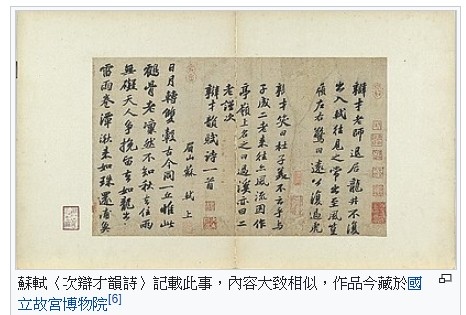 辯才老師退居龍井不復
出入軾往見之常出至風篁
嶺左右驚曰遠公復過虎
辯才笑曰杜子美不云乎與
子成二老來往亦風流因作
亭嶺上名之曰過溪亦曰二
老謹次
辯才韻賦詩一首
眉山蘇軾上
日月轉雙轂古今同一丘惟此
鶴骨老凜然不知秋去住兩
無礙天人爭挽留去如龍出山
雷雨卷潭湫來如珠還浦魚
蘇軾〈次辯才韻詩〉記載此事，內容大致相似，作品今藏於國
立故宮博物院[6]